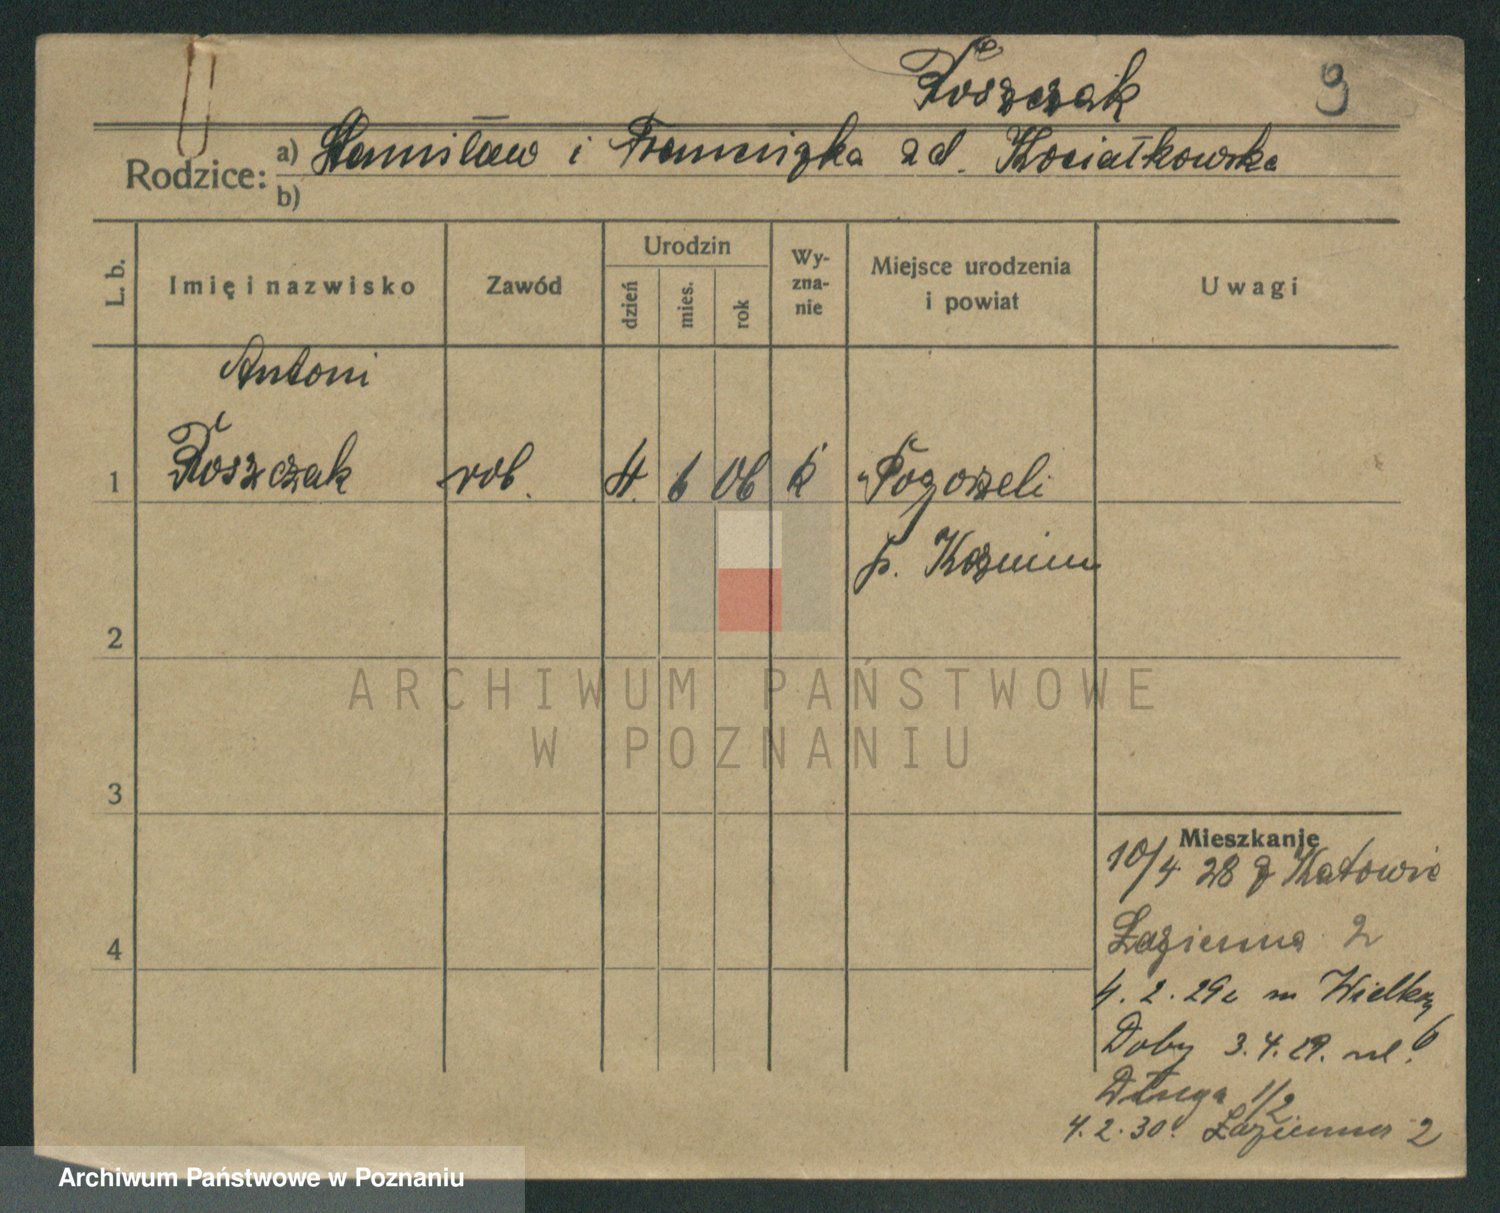 Roszczak
9
Rodzice:
a) Stanisław i Franciszka zd. Kosiałkowska
b)
L. b.
Imię i nazwisko
Zawód
Urodzin
dzień
mies.
rok
Wy-
zna-
nie
Miejsce urodzenia
i powiat
Uwagi
Antoni
1 Roszczak rob. 4. 6 06 k Pogorzeli
p. Koźmin
2
3
4
Mieszkanie
10/4 28 z Katowic
Łazienna 2
4. 2. 29 Wielkiej
3. 4. 29. ul.
Długa 1/2
4. 2. 30. Łazienna 2
ARCHIWUM PAŃSTWOWE
W POZNANIU
Archiwum Państwowe w Poznaniu